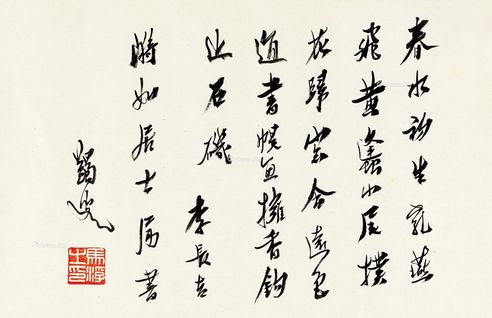 春水初生乳燕
飛黃蠭小尾撲
花歸窗含遠色
通書幌魚擁香鉤
近石磯 李長吉
如居士屬書
蠲叟
馬浮